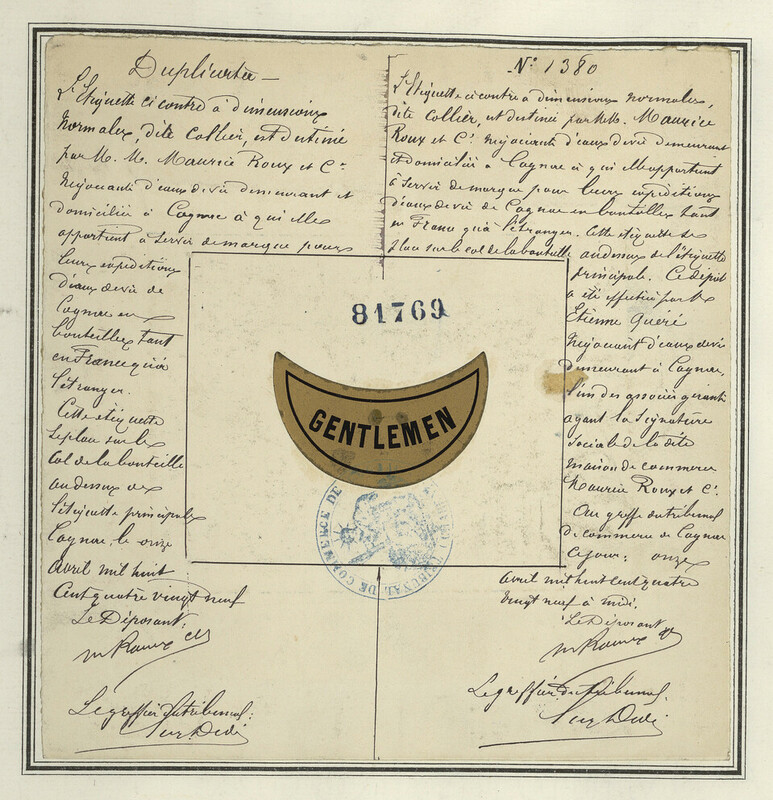 Duplicata —
L'étiquette ci contre à dimensions
normales, dite Collier, est destinée
par M. M. Maurice Roux et Cie
Négociants d'eaux de vie demeurant et
domiciliés à Cognac à qui elle
appartient à servir de marque pour
leurs expéditions
d'eaux de vie de
Cognac en
bouteilles tant
en France qu'à
l'étranger.
Cette étiquette
se place sur le
Col de la bouteille
au dessus de
l'étiquette principale
Cognac, le onze
avril mil huit
Cent quatre vingt neuf
Le Déposant:
M Roux Cie
Le greffier du tribunal:
No 1380
L'étiquette ci contre à dimensions normales,
dite Collier, est destinée par M. M. Maurice
Roux et Cie Négociants d'eaux de vie demeurant
et domiciliés à Cognac à qui elle appartient
à servir de marque pour leurs expéditions
d'eaux de vie de Cognac en bouteilles tant
en France qu'à l'étranger. Cette étiquette se
place sur le col de la bouteille au dessus de l'étiquette
principale. Ce dépôt
a été effectué par M
Etienne Quéré
Négociant d'eaux de vie
demeurant à Cognac,
l'un des associés gérants
ayant la signature
sociale de la dite
maison de commerce
Maurice Roux et Cie
Au greffe du tribunal
de commerce de Cognac
ce jour: onze
avril mil huit cent quatre
vingt neuf à midi.
Le Déposant
M Roux Cie
Le greffier du tribunal.
81769
GENTLEMEN
TRIBUNAL DE COMMERCE DE